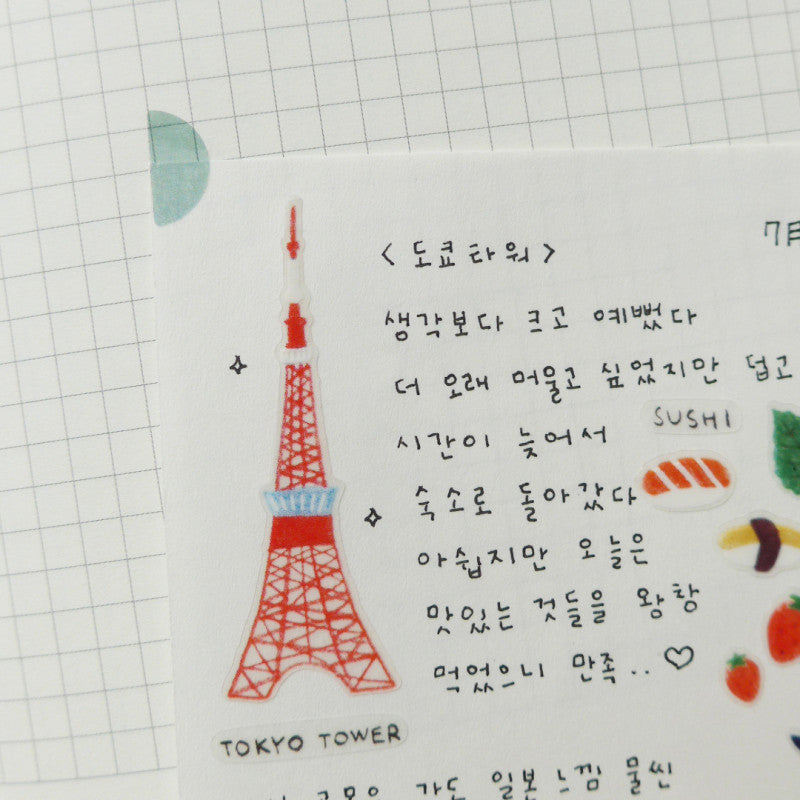 7月
< 도쿄타워 >
생각보다 크고 예뻤다
더 오래 머울고 싶었지만 덥고
시간이 늦어서
SUSHI
숙소로 돌아갔다
아쉽지만 오늘은
맛있는 것들을 왕창
먹었으니 만족.. ♡
TOKYO TOWER
가도 일본 느낌 물씬